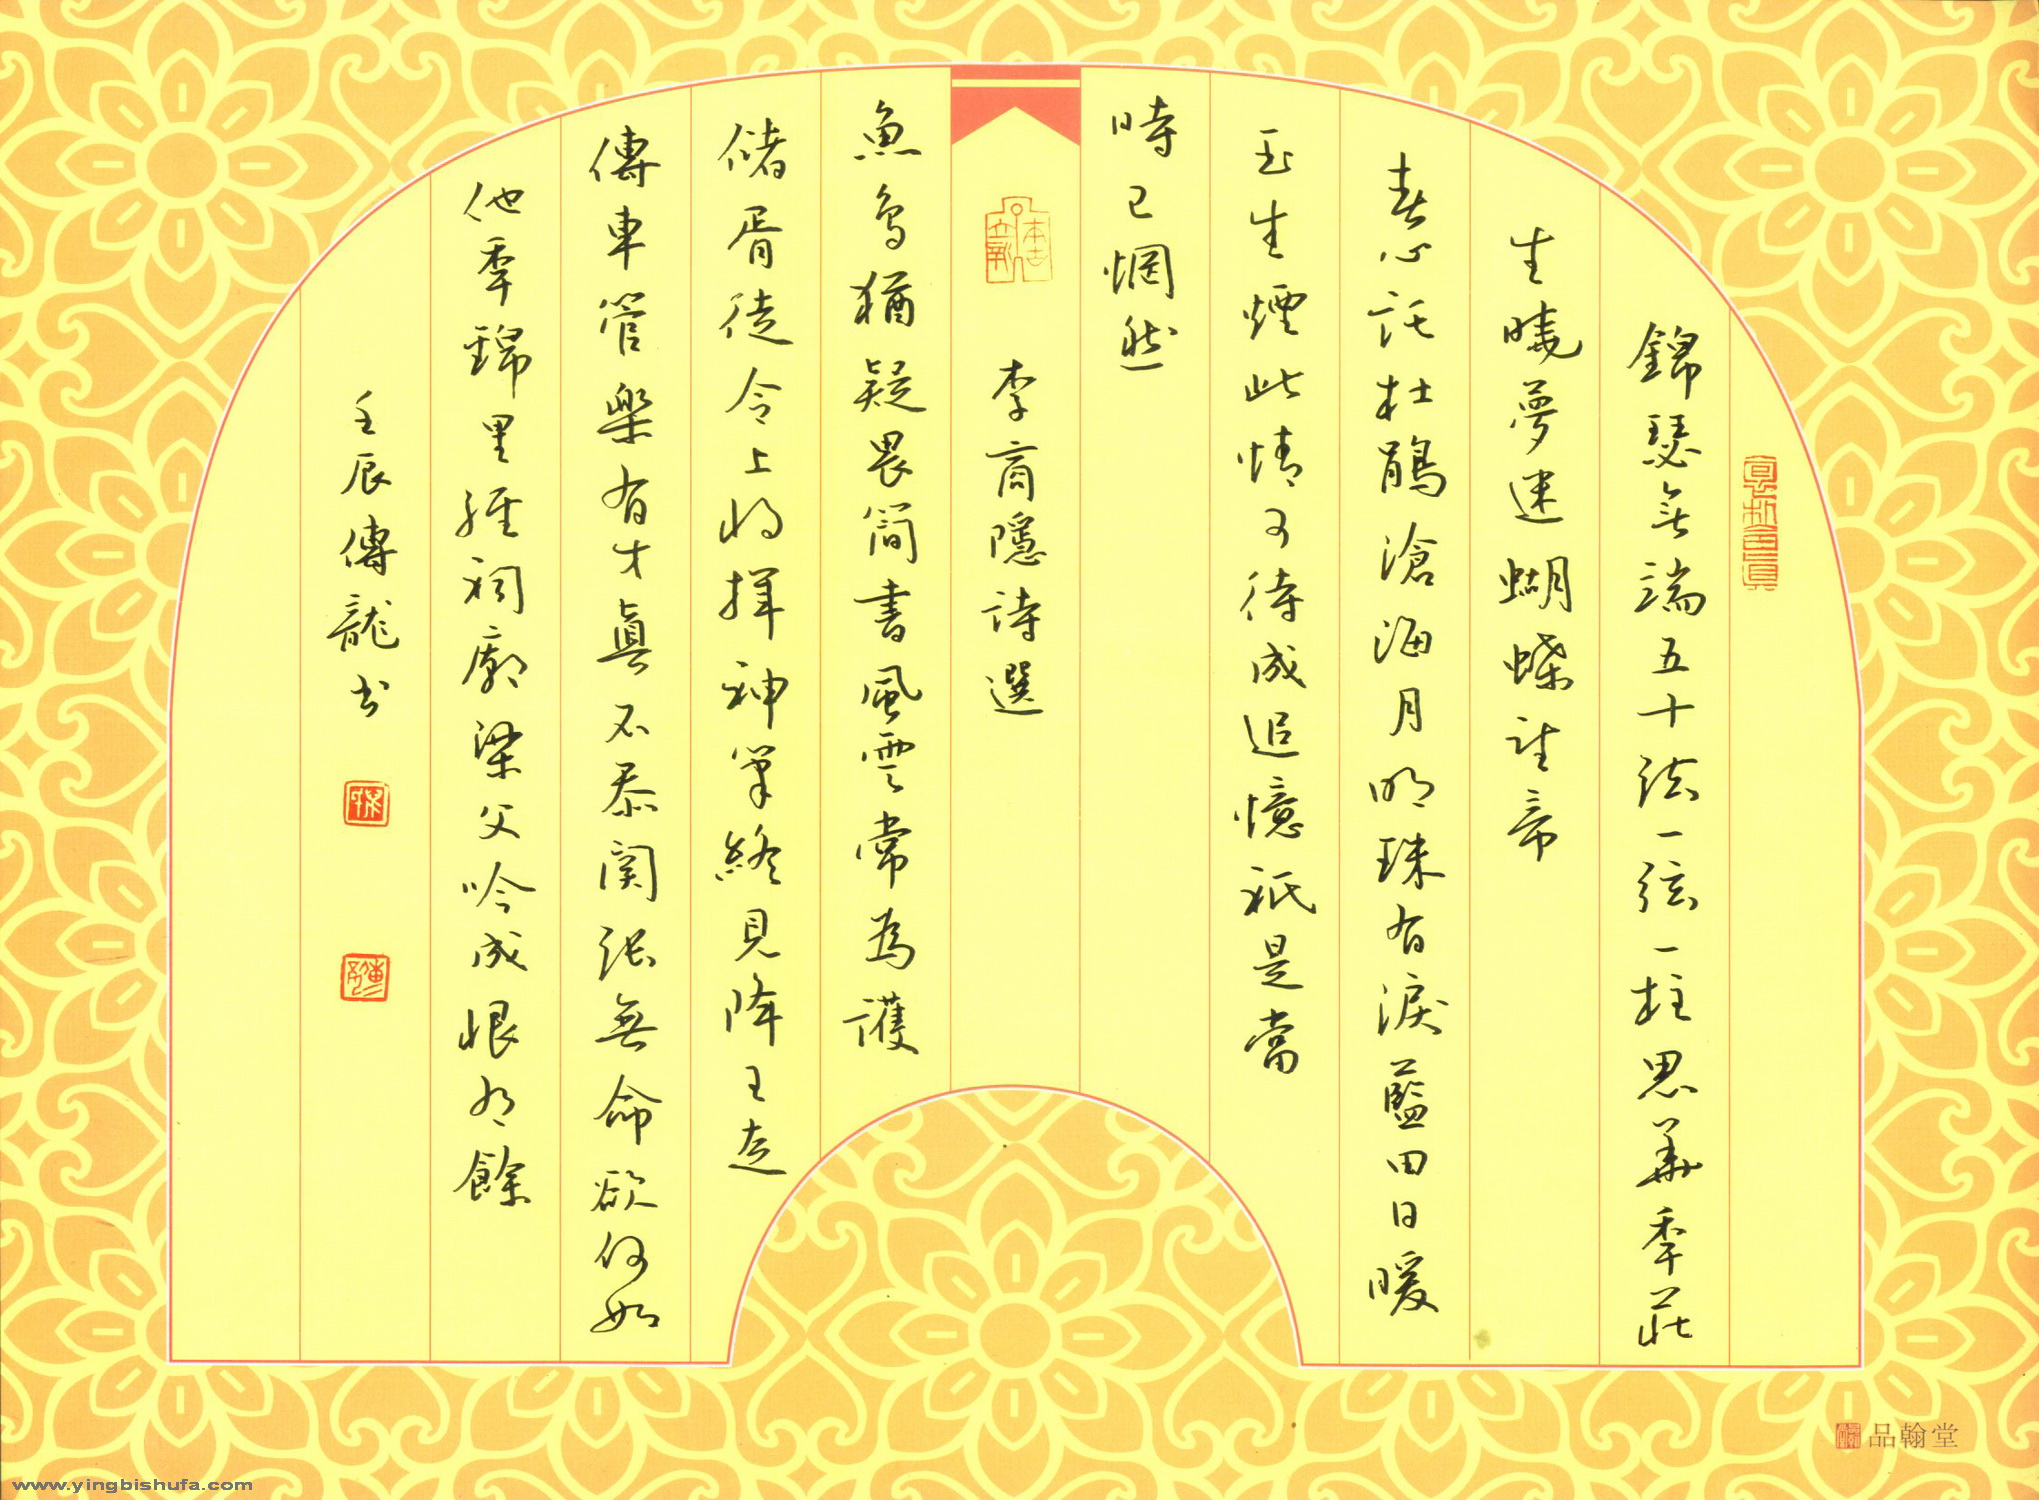 錦瑟無端五十弦一弦一柱思華年莊
生曉夢迷蝴蝶望帝
春心託杜鵑滄海月明珠有淚藍田日暖
玉生煙此情可待成追憶祇是當
時已惘然
李商隱詩選
魚鳥猶疑畏簡書風雲常為護
儲胥徒令上將揮神筆終見降王走
傳車管樂有才眞不忝関張無命欲何如
他年錦里經祠廟梁父吟成恨有餘
壬辰傳龍書
品翰堂
www.yingbishufa.com